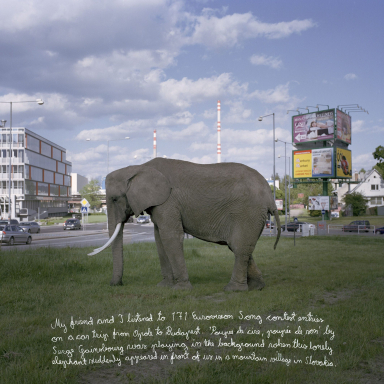 My friend and I listened to 171 Eurovision Song contest entries
on a car trip from Opole to Budapest. 'Poupée de cire, poupée de son' by
Serge Gainsbourg was playing in the background when this lonely
elephant suddenly appeared in front of us in a mountain village in Slovakia.